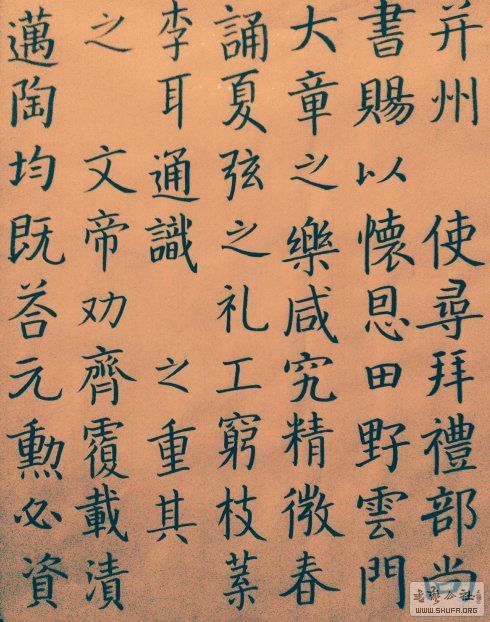 并州 使尋拜禮部尚
書賜以懷恩田野雲門
大章之樂咸究精微春
誦夏弦之礼工窮枝葉
李耳通識 之重其
之 文帝劝齊覆載漬
邁陶均既荅元勳必資
WWW.SHUFA.ORG